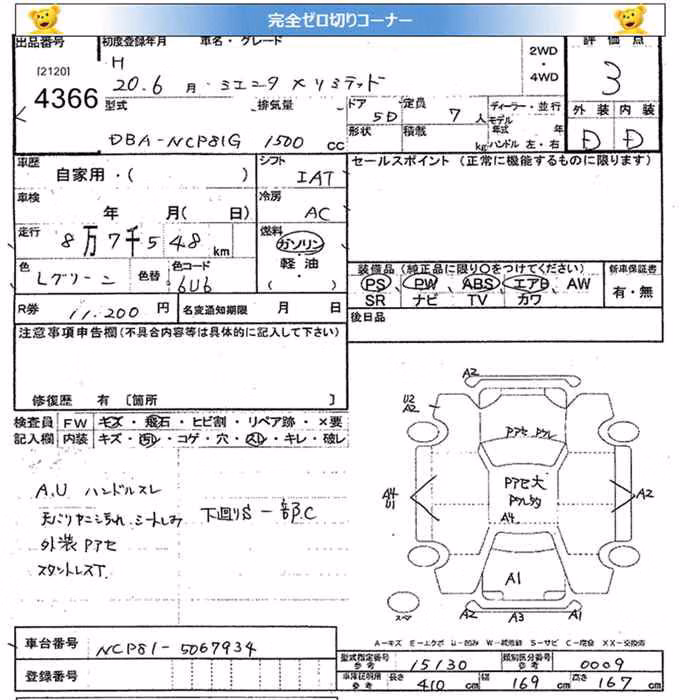 完全ゼロ切りコーナー
出品番号 初度登録年月 車名・グレード 2WD・4WD 評価点
[2120] 4366
H 20.6 月 シエンタ X リミテッド 3
型式 排気量 ドア 5D 定員 7 人 ディーラー・並行 外装 内装
形状 積載 kg モデル年式 年 ハンドル 左・右
DBA-NCP81G 1500 cc D D
車歴 自家用・( ) シフト IAT セールスポイント (正常に機能するものに限ります)
車検 年 月( 日) 冷房 AC
走行 8万7千548 km 燃料 ガソリン・軽油・( )
色 Lグリーン 色替 色コード 6U6
装備品 (純正品に限り○をつけてください) 新車保証書
PS、PW、ABS、エアB、AW 有・無
SR ナビ TV カワ
R券 11,200 円 名変通知期限 月 日
後日品
注意事項申告欄 (不具合内容等は具体的に記入して下さい)
修復歴 有 [箇所 ]
検査員 FW キズ・飛石・ヒビ割・リペア跡・×要
記入欄 内装 キズ・汚レ・コゲ・穴・スレ・キレ・破レ
A.U ハンドルスレ
天バリヤニ汚れ シートしみ
下廻りS 一部C
外装 Pアセ
スタットレスT.
A2
U2
A2
Pアセ
Pアセ大
A4
A4
U1
A2
A1
スペア
A2 A3 A1
A-キズ E-エクボ U-凹み W-波 S-サビ C-腐食 XX-交換済
車台番号 NCP81-5067934
登録番号
型式指定番号 参考 15130 類別区分番号 参考 0009
車庫証明用 参考 長さ 410 cm 幅 169 cm 高さ 167 cm